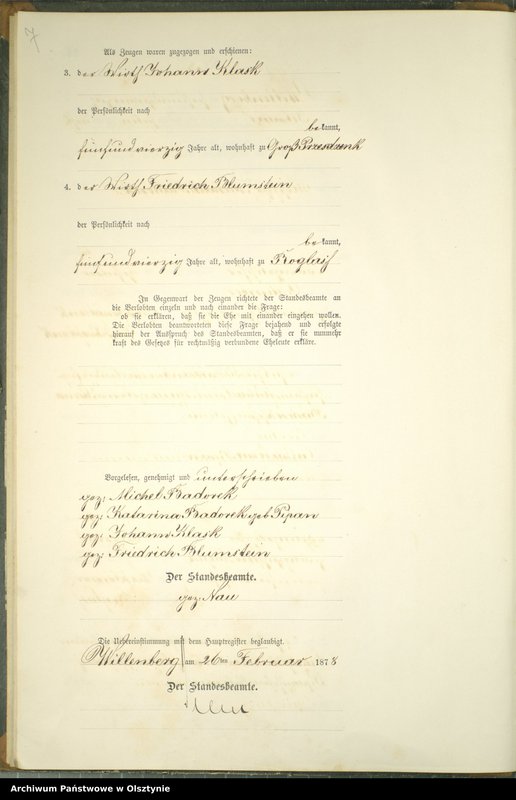 7
Als Zeugen waren zugezogen und erschienen:
3. der Wirth Johann Klask
der Persönlichkeit nach
bekannt,
fünfundvierzig Jahre alt, wohnhaft zu Groß
4. der Wirth Friedrich Blumstein
der Persönlichkeit nach
bekannt,
fünfundvierzig Jahre alt, wohnhaft zu
In Gegenwart der Zeugen richtete der Standesbeamte an
die Verlobten einzeln und nach einander die Frage:
ob sie erklären, daß sie die Ehe mit einander eingehen wollen.
Die Verlobten beantworteten diese Frage bejahend und erfolgte
hierauf der Ausspruch des Standesbeamten, daß er sie nunmehr
kraft des Gesetzes für rechtmäßig verbundene Eheleute erkläre.
Vorgelesen, genehmigt und unterschrieben
gez: Michel Badorek
gez: Katarina Badorek geb Pipan
gez: Johann Klask
gez: Friedrich Blumstein
Der Standesbeamte.
gez. Nau
Die Uebereinstimmung mit dem Hauptregister beglaubigt.
Willenberg am 26ten Februar 1878
Der Standesbeamte.
Nau
Archiwum Państwowe w Olsztynie